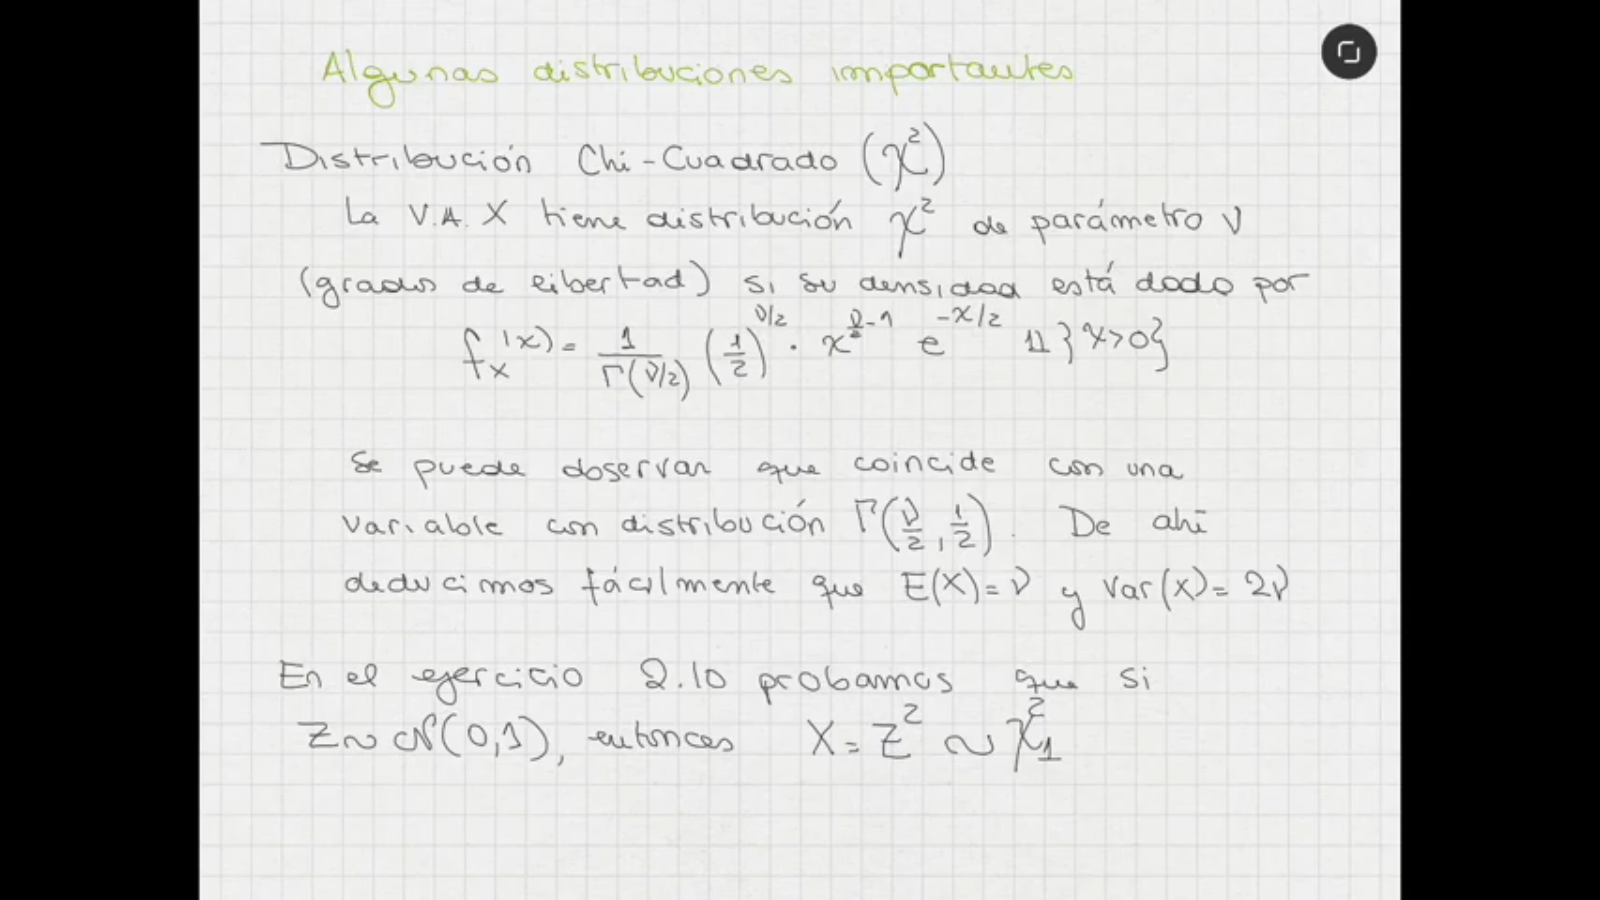 Algunas distribuciones importantes
Distribución Chi-Cuadrado (χ²)
La V.A. X tiene distribución χ² de parámetro ν
(grados de libertad) si su densidad está dada por
f_X(x) = 1/Γ(ν/2) (1/2)^{ν/2} · x^{ν/2 - 1} e^{-x/2} 𝟙{x>0}
Se puede observar que coincide con una
variable con distribución Γ(ν/2, 1/2). De ahí
deducimos fácilmente que E(X) = ν y Var(X) = 2ν
En el ejercicio 2.10 probamos que si
Z ~ N(0,1), entonces X = Z² ~ χ²₁